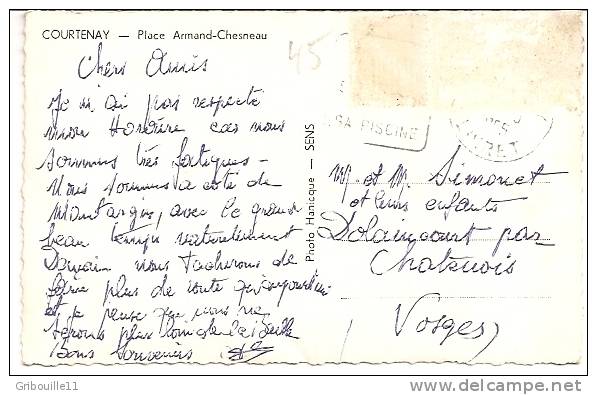 COURTENAY — Place Armand-Chesneau
45
Chers Amis
Je n'ai pas respecté
mon Horaire car nous
sommes très fatigués -
Nous sommes a coté de
Montargis, avec le grand
beau temps naturellement
Demain nous tacherons de
faire plus de route qu'aujourd'hui
et je pense que nous ne
serons plus loin de la
Bons Souvenirs
Photo Hanicque — SENS
SA PISCINE
et M. Simonet
et leurs enfants
Dolaincourt par
Chatenois
Vosges
Gribouille11
http://www.delcampe.net